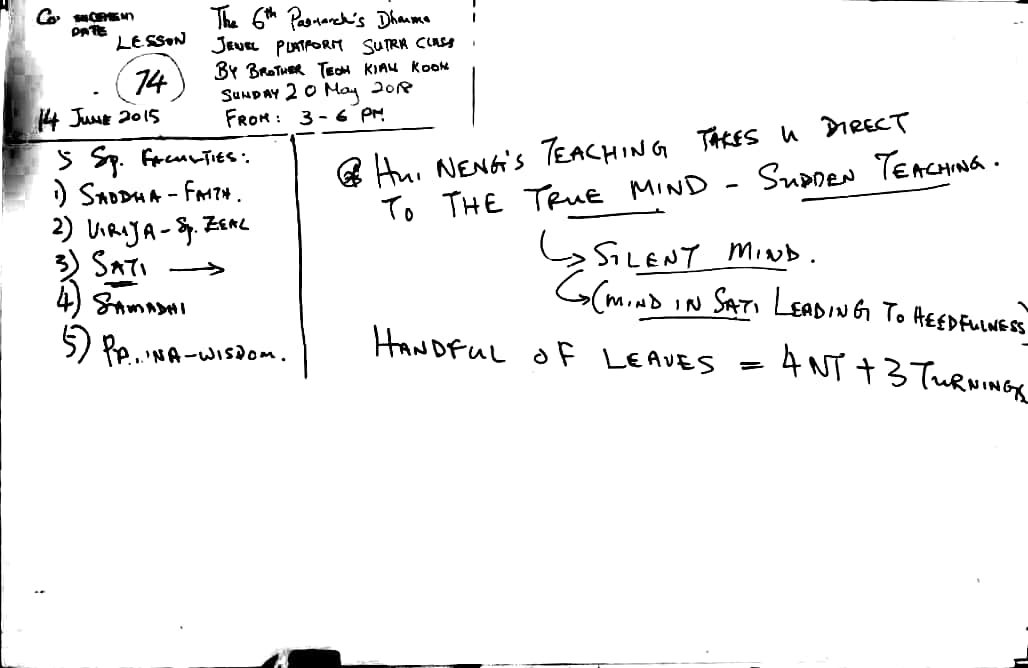 The 6th Patriarch's Dharma
DATE
LESSON
JEWEL PLATFORM SUTRA CLASS
74
BY BROTHER TEOH KIAN KOON
SUNDAY 20 May 2018
14 JUNE 2015
FROM: 3-6 PM
5 Sp. FACULTIES:
1) SADDHA - FAITH.
2) VIRIYA - Sp. ZEAL
3) SATI →
4) SAMADHI
5) -WISDOM.
HUI NENG'S TEACHING TAKES U DIRECT
TO THE TRUE MIND - SUDDEN TEACHING.
↳ SILENT MIND.
↳ (MIND IN SATI LEADING TO HEEDFULNESS)
HANDFUL OF LEAVES = 4NT + 3 TURNINGS